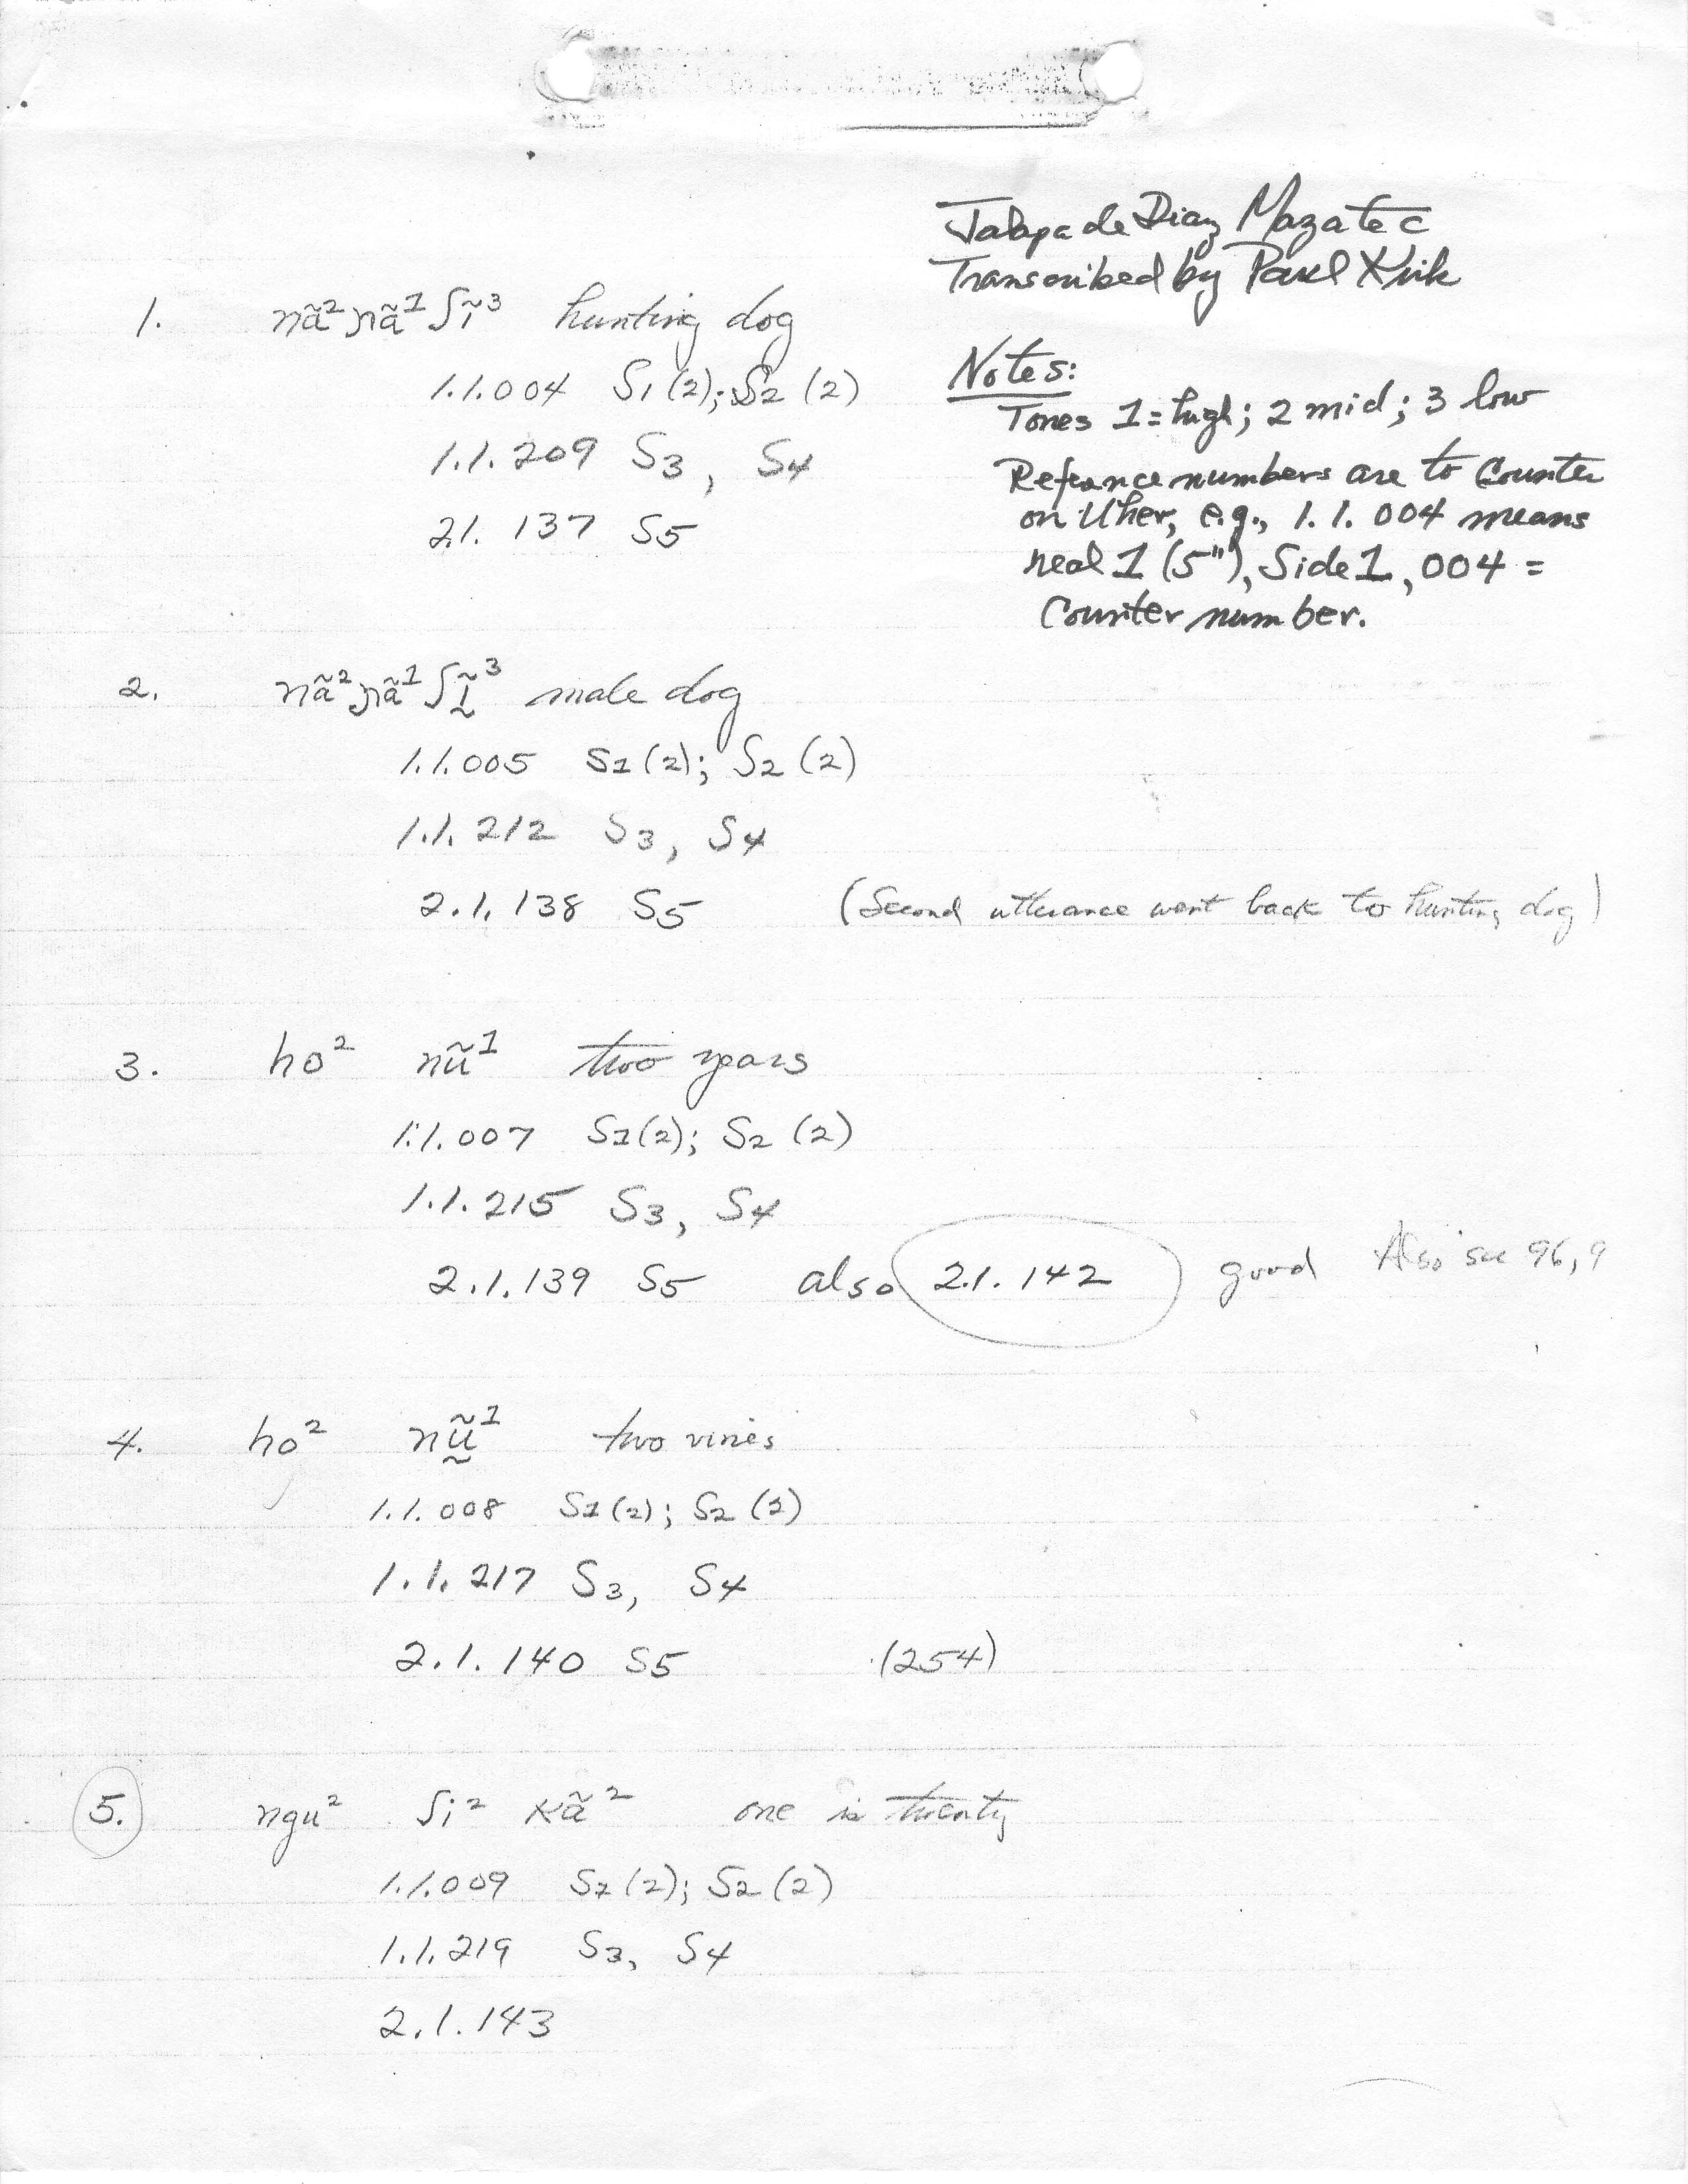 Jalapa de Diaz Mazatec
Transcribed by Paul Kirk
Notes:
Tones 1=high; 2 mid; 3 low
Referance numbers are to Counter
on Uher, e.g., 1.1.004 means
reel 1 (5"), Side 1, 004 =
Counter number.
1. nã²ɲã¹ʃĩ³ hunting dog
1.1.004 S1(2); S2 (2)
1.1.209 S3, S4
2.1.137 S5
2. nã²ɲã¹ʃḭ̃³ male dog
1.1.005 S1(2); S2 (2)
1.1.212 S3, S4
2.1.138 S5 (Second utterance went back to hunting dog)
3. ho² nũ¹ two years
1.1.007 S1(2); S2 (2)
1.1.215 S3, S4
2.1.139 S5 also 2.1.142 good Also see 96, 9
4. ho² nṵ̃¹ two vines
1.1.008 S1(2); S2 (2)
1.1.217 S3, S4
2.1.140 S5 (254)
5. ngu² ʃi² kã² one is twenty
1.1.009 S1(2); S2 (2)
1.1.219 S3, S4
2.1.143